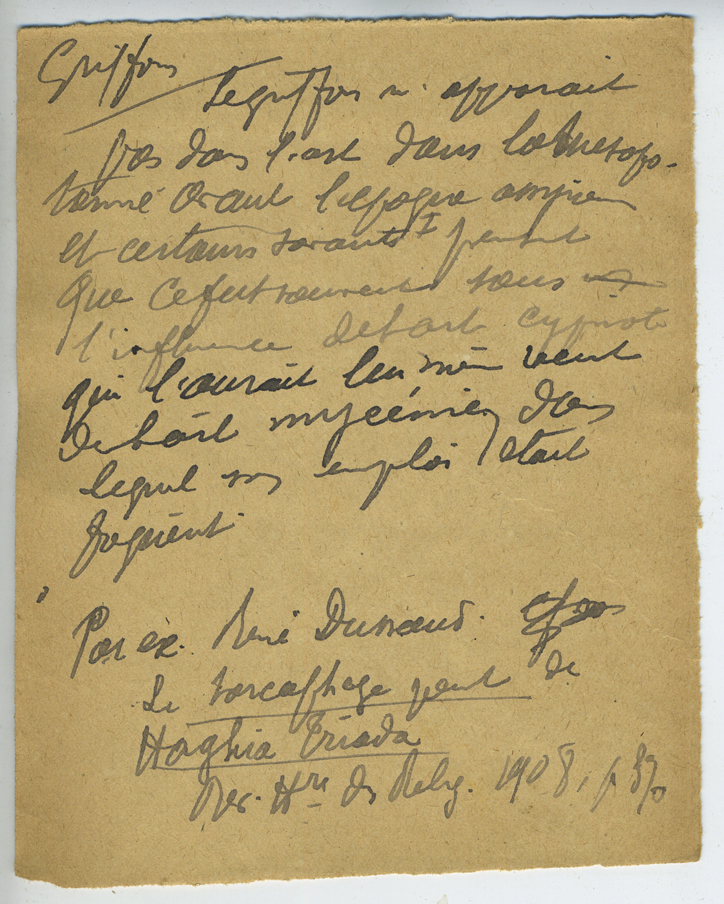 Griffon
Le griffon n'apparait
pas dans l'art dans la Mesopo-
tamie avant l'epoque assyrien
et certains savants I pensent
que ce fut sous
l'influence de l'art cypriote
qui l'aurait lui même
de l'art mycénien dans
lequel son emploi était
fréquent.
Par ex. René Dussaud.
Le sarcophage peint de
Haghia Triada
Rev. Hre des Relig. 1908, p. 87